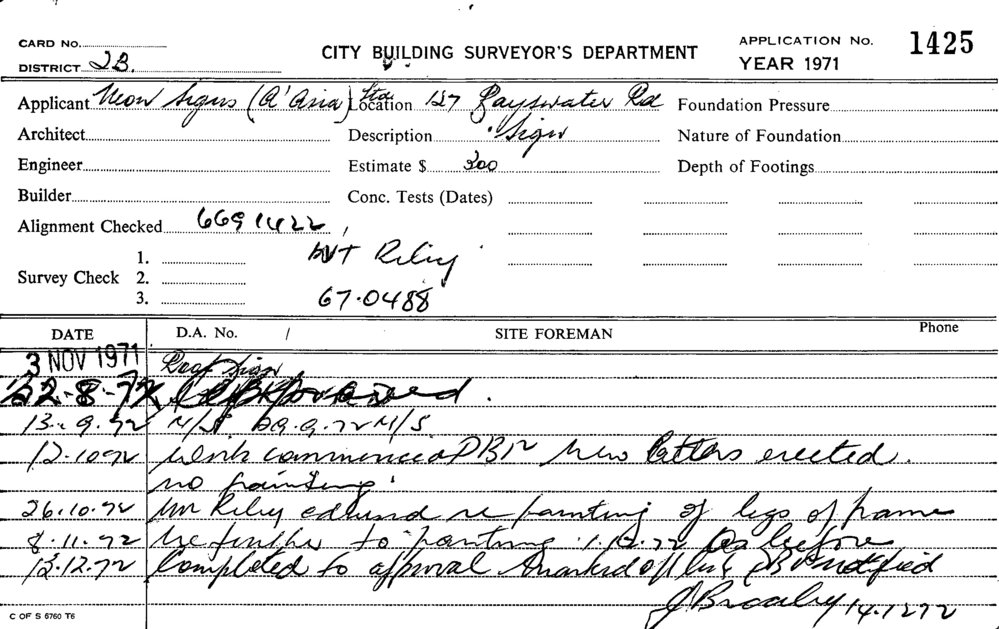 CARD No.
DISTRICT 2B.
CITY BUILDING SURVEYOR'S DEPARTMENT
APPLICATION No. 1425
YEAR 1971
Applicant Neon Signs (A'Asia) Location 127 Bayswater Rd Foundation Pressure
Architect Description Sign Nature of Foundation
Engineer Estimate $ 300 Depth of Footings
Builder Conc. Tests (Dates)
Alignment Checked 6691422
1. Riley
Survey Check 2.
3. 67.0488
DATE D.A. No. / SITE FOREMAN Phone
3 NOV 1971 Roof Sign
22-8-72
13.9.72 N/S N/S
12.10.72 Work commenced new letters erected.
no painting
26.10.72 Mr Riley re painting of legs of frame
8.11.72 further to painting 1.12.72 As before
13.12.72 Completed to approval marked off notified
14.12.72
C OF S 6760 T6